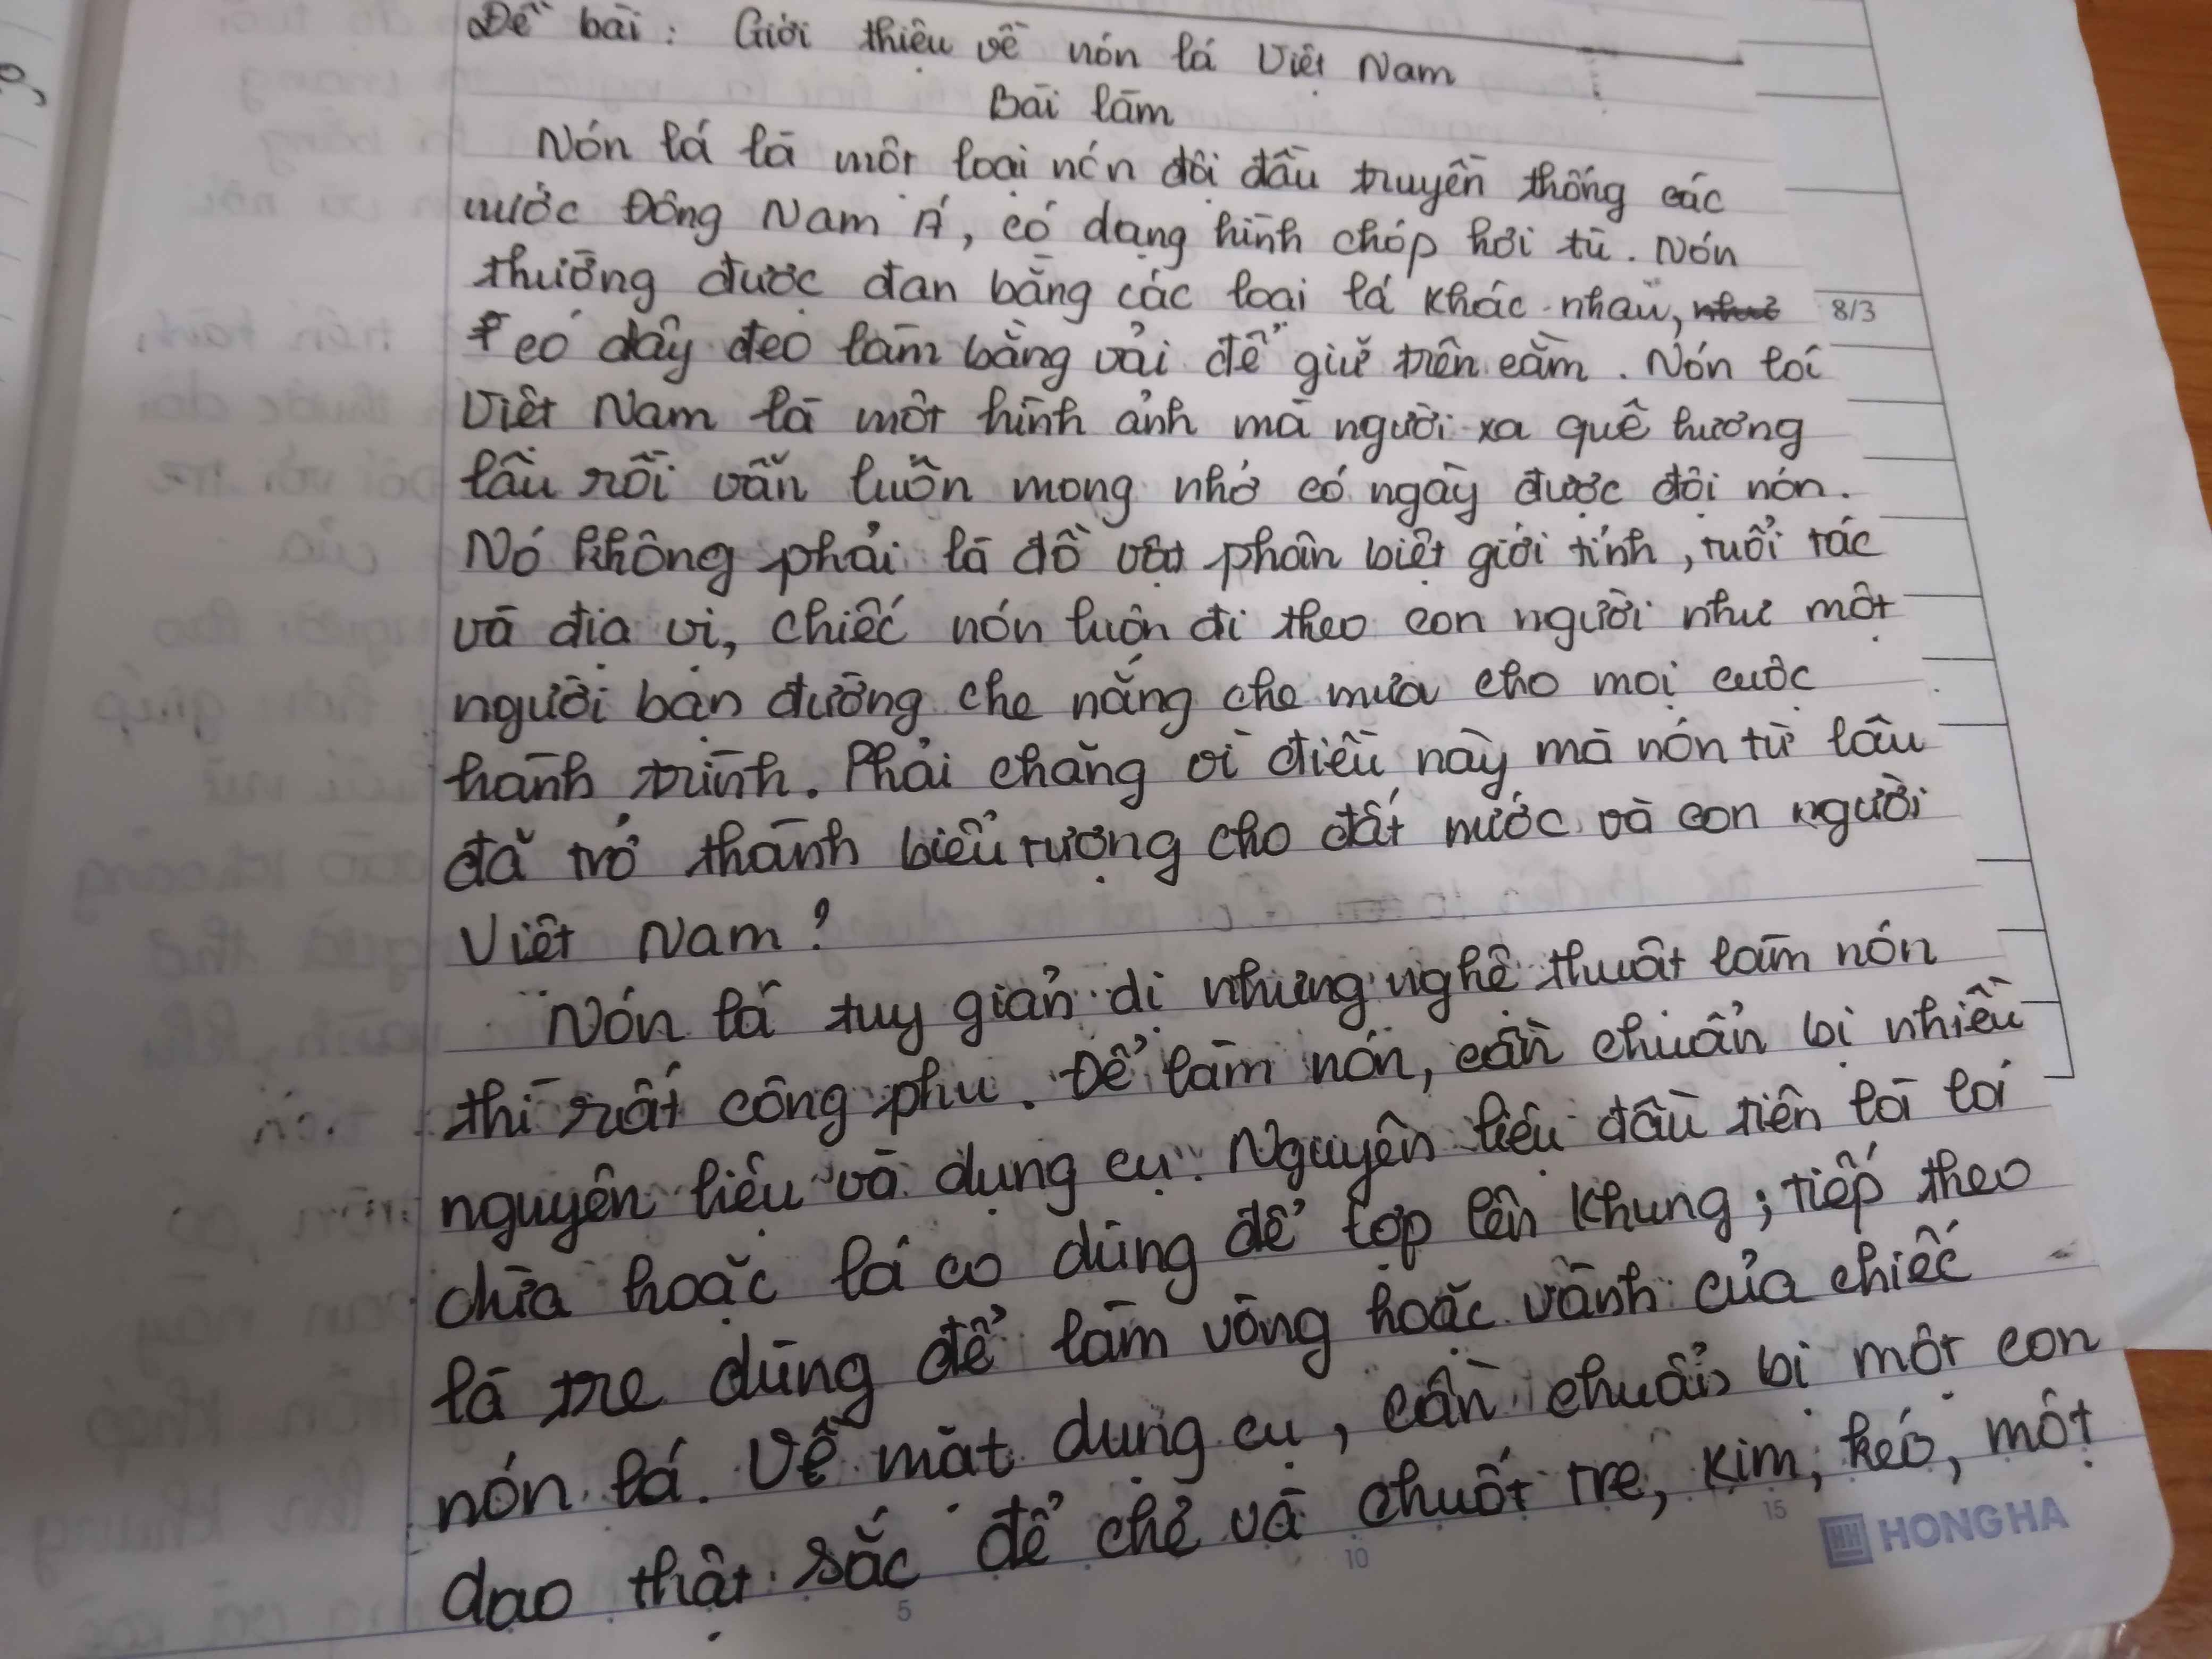 Đề bài: Giới thiệu về nón lá Việt Nam
Bài làm
Nón lá là một loại nón đội đầu truyền thống các
nước Đông Nam Á, có dạng hình chóp hơi tù. Nón
thường được đan bằng các loại lá khác nhau, như
8/3
có dây đeo làm bằng vải để giữ trên cằm. Nón lá
Việt Nam là một hình ảnh mà người xa quê hương
lâu rồi vẫn luôn mong nhớ có ngày được đội nón.
Nó không phải là đồ vật phân biệt giới tính, tuổi tác
và địa vị, chiếc nón luôn đi theo con người như một
người bạn đường che nắng che mưa cho mọi cuộc
hành trình. Phải chăng vì điều này mà nón từ lâu
đã trở thành biểu tượng cho đất nước và con người
Việt Nam?
Nón lá tuy giản dị nhưng nghệ thuật làm nón
thì rất công phu. Để làm nón, cần chuẩn bị nhiều
nguyên liệu và dụng cụ. Nguyên liệu đầu tiên là lá
dừa hoặc lá cọ dùng để lợp lên khung; tiếp theo
là tre dùng để làm vòng hoặc vành của chiếc
nón lá. Về mặt dụng cụ, cần chuẩn bị một con
dao thật sắc để chẻ và chuốt tre, kim, kéo, một
5 10 15
HONG HA